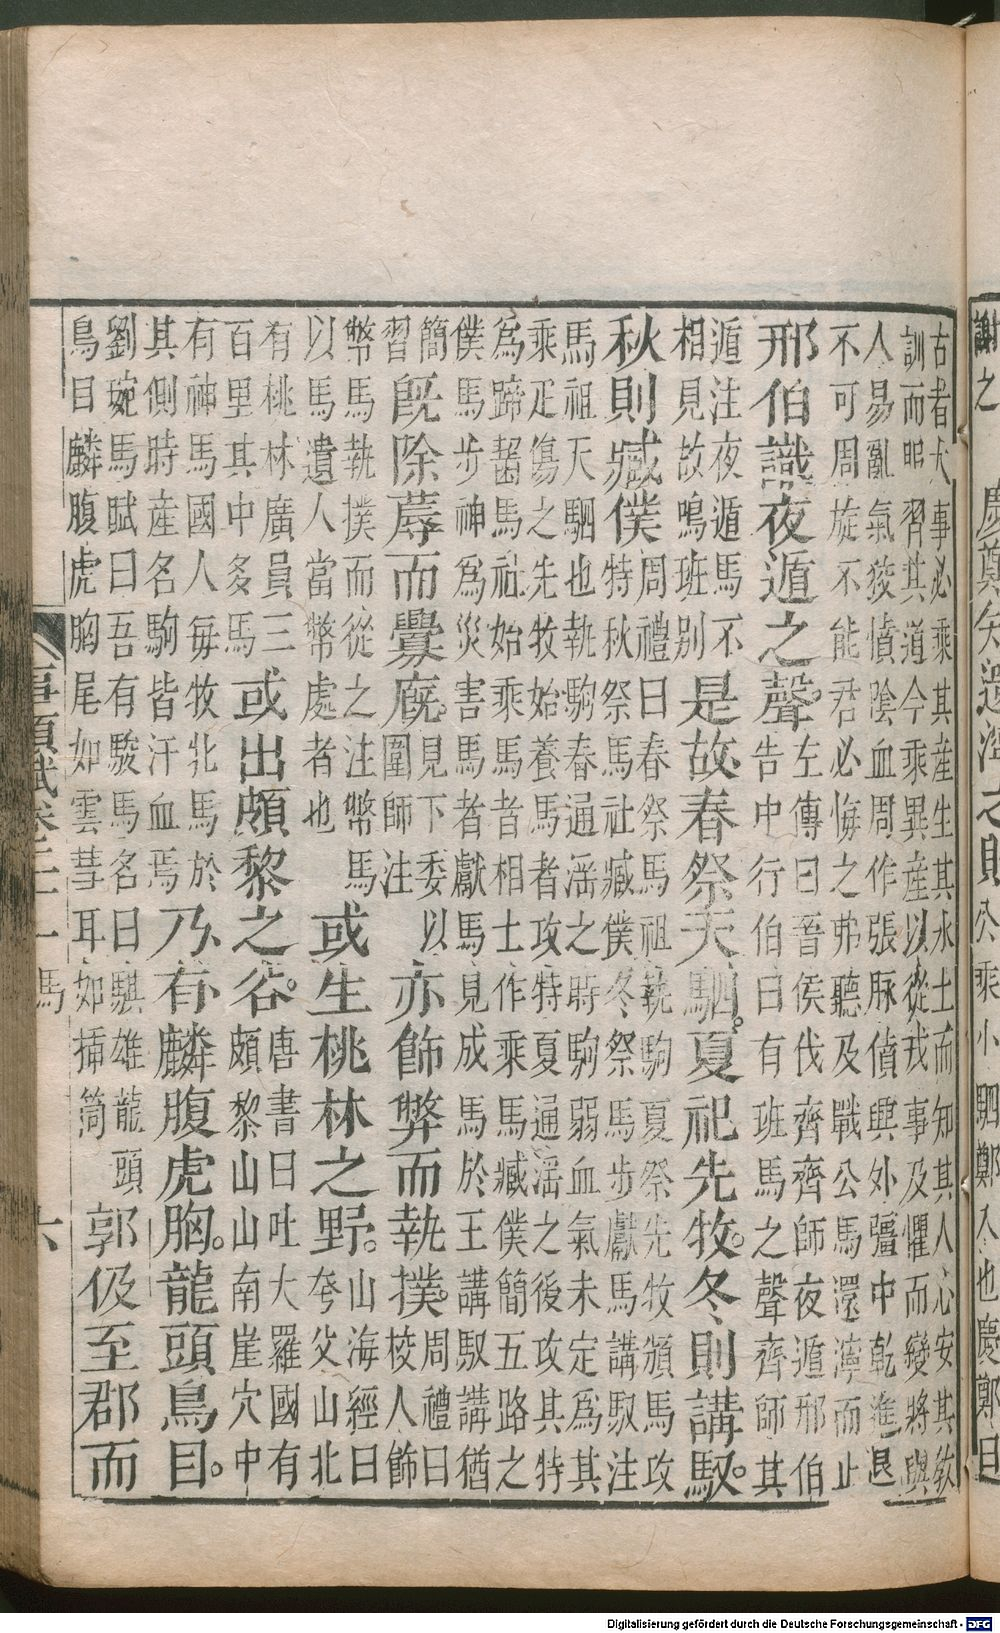 謝之
乘小駟鄭入也慶鄭曰
古者大事必乘其産生其水土而知其人心安其敎
訓而服習其道今乘異産以從戎事及懼而變將與
人易亂氣狡憤陰血周作張脉僨興外彊中乾進退
不可周旋不能君必悔之弗聽及戰公馬還濘而止
邢伯識夜遁之聲。
左傳曰晉侯伐齊齊師夜遁邢伯
告中行伯曰有班馬之聲齊師其
遁注夜遁馬不
相見故鳴班别
是故春祭天駟。夏祀先牧。冬則講馭。
秋則臧僕
周禮曰春祭馬祖執駒夏祭先牧頒馬攻
特秋祭馬社臧僕冬祭馬步獻馬講馭注
馬祖天駟也執駒春通滛之時駒弱血氣未定為其
乘疋傷之先牧始養馬者攻特夏通滛之後攻其特
為蹄齧馬社始乘馬者相士作乘馬臧僕簡五路之
僕馬步神為災害馬者獻馬見成馬於王講馭講猶
簡
習
既除蓐而釁廐。
見下委以
圉師注
亦飾弊而執撲。
周禮曰
校人飾
幣馬執撲而從之注幣馬
以馬遺人當幣處者也
或生桃林之野。
山海經曰
夸父山北
有桃林廣員三
百里其中多馬
或出頗黎之谷。
唐書曰吐大羅國有
頗黎山山南崖穴中
有神馬國人毎牧牝馬於
其側時産名駒皆汗血焉
乃有麟腹虎胸。龍頭鳥目。
劉琬馬賦曰吾有駿馬名曰騏雄龍頭
鳥目麟腹虎胸尾如雲彗耳如揷筒
郭伋至郡而
事類賦卷二十一 馬 六
Digitalisierung gefördert durch die Deutsche Forschungsgemeinschaft - DFG